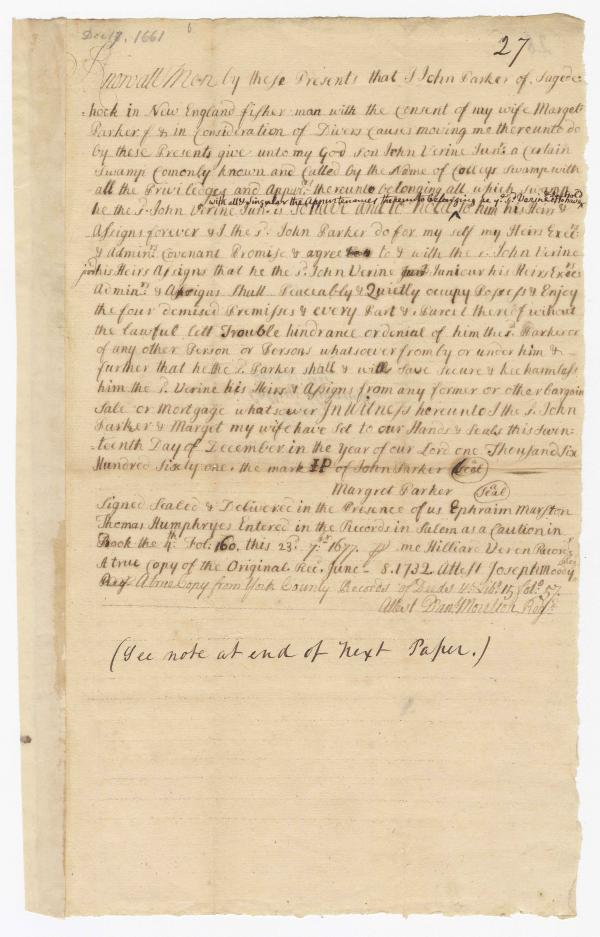 Dec 17. 1661
27
Know all Men by these Presents that I John Parker of Sagede-
-hock in New England fisher man with the Consent of my wife Marget
Parker & in Consideration of Divers Causes moving me thereunto do
by these Presents give unto my God Son John Verine Junr. a Certain
Swamp Comonly known and Called by the Name of Colleys Swamp with
all the Priviledges and Appurts. thereunto belonging all which Swamp
with all & singular the Appurtenances thereunto belonging he ye. sd. Verine
he the sd. John Verine Junr. is to have and to Hold to him his Heirs &
Assigns forever & I the sd. John Parker do for my self my Heirs Execrs.
& Adminrs. Covenant Promise & agree to & with the sd. John Verine
his Heirs Assigns that he the sd. John Verine Juniour his Heirs Execs
Adminrs. & Assigns Shall Peaceably & Quietly occupy Possess & Enjoy
the four demised Premisses & every Part & Parcel thereof without
the lawful lett Trouble hindrance or denial of him the sd. Parker or
of any other Person or Persons whatsoever from by or under him &
further that he the sd. Parker shall & will Save Secure & kee harmless
him the sd. Verine his Heirs & Assigns from any former or other bargain
Sale or Mortgage whatsoever In Witness hereunto I the sd. John
Parker & Marget my wife have Set to our Hands & Seals this Seven-
teenth Day of December in the Year of our Lord one Thousand Six
Hundred Sixty one. the mark IP of John Parker (Seal)
Margret Parker (Seal)
Signed Sealed & Delivered in the Presence of us Ephraim Marston
Thomas Humphryes Entered in the Records in Salem as a Caution in
Book the 4th. Fol. 160. this 23d. 7br. 1677. me Hilliard Veren Record
A true Copy of the Original Rec. June 8. 1732 Attest Joseph Moody
Regr A true Copy from York County Records of Deeds Lib. 15 Folo. 57.
Attest Danl. Moulton Regr.
(See note at end of next Paper.)